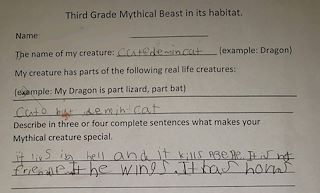 Third Grade Mythical Beast in its habitat.
Name
The name of my creature: catodemincat (example: Dragon)
My creature has parts of the following real life creatures:
(example: My Dragon is part lizard, part bat)
Cato demin-cat
Describe in three or four complete sentences what makes your
Mythical creature special.
It livs in hell and it kills PeePe. It is not
It he wings. It has horns